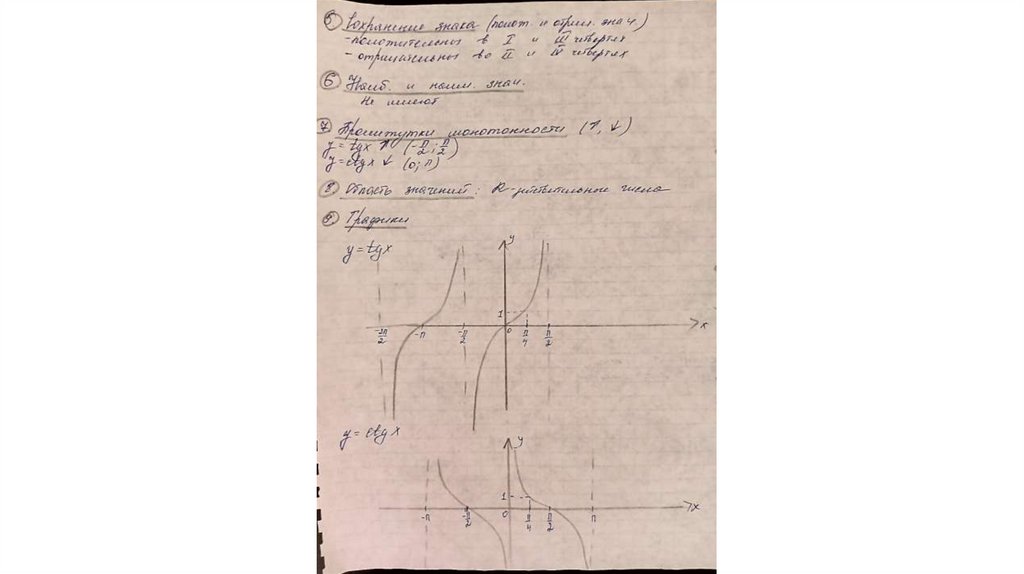 5) Сохранение знака (полож. и отриц. знач.)
- положительны в I и III четвертях
- отрицательны во II и IV четвертях
6) Наиб. и наим. знач.
Не имеют
7) Промежутки монотонности (↑, ↓)
y = tgx ↑ (-π/2; π/2)
y = ctgx ↓ (0; π)
8) Область значений: R-действительные числа
9) Графики
y = tgx
y
1
-3π/2 -π -π/2 0 π/4 π/2 x
y = ctgx
y
1
-π -π/2 0 π/4 π/2 π x